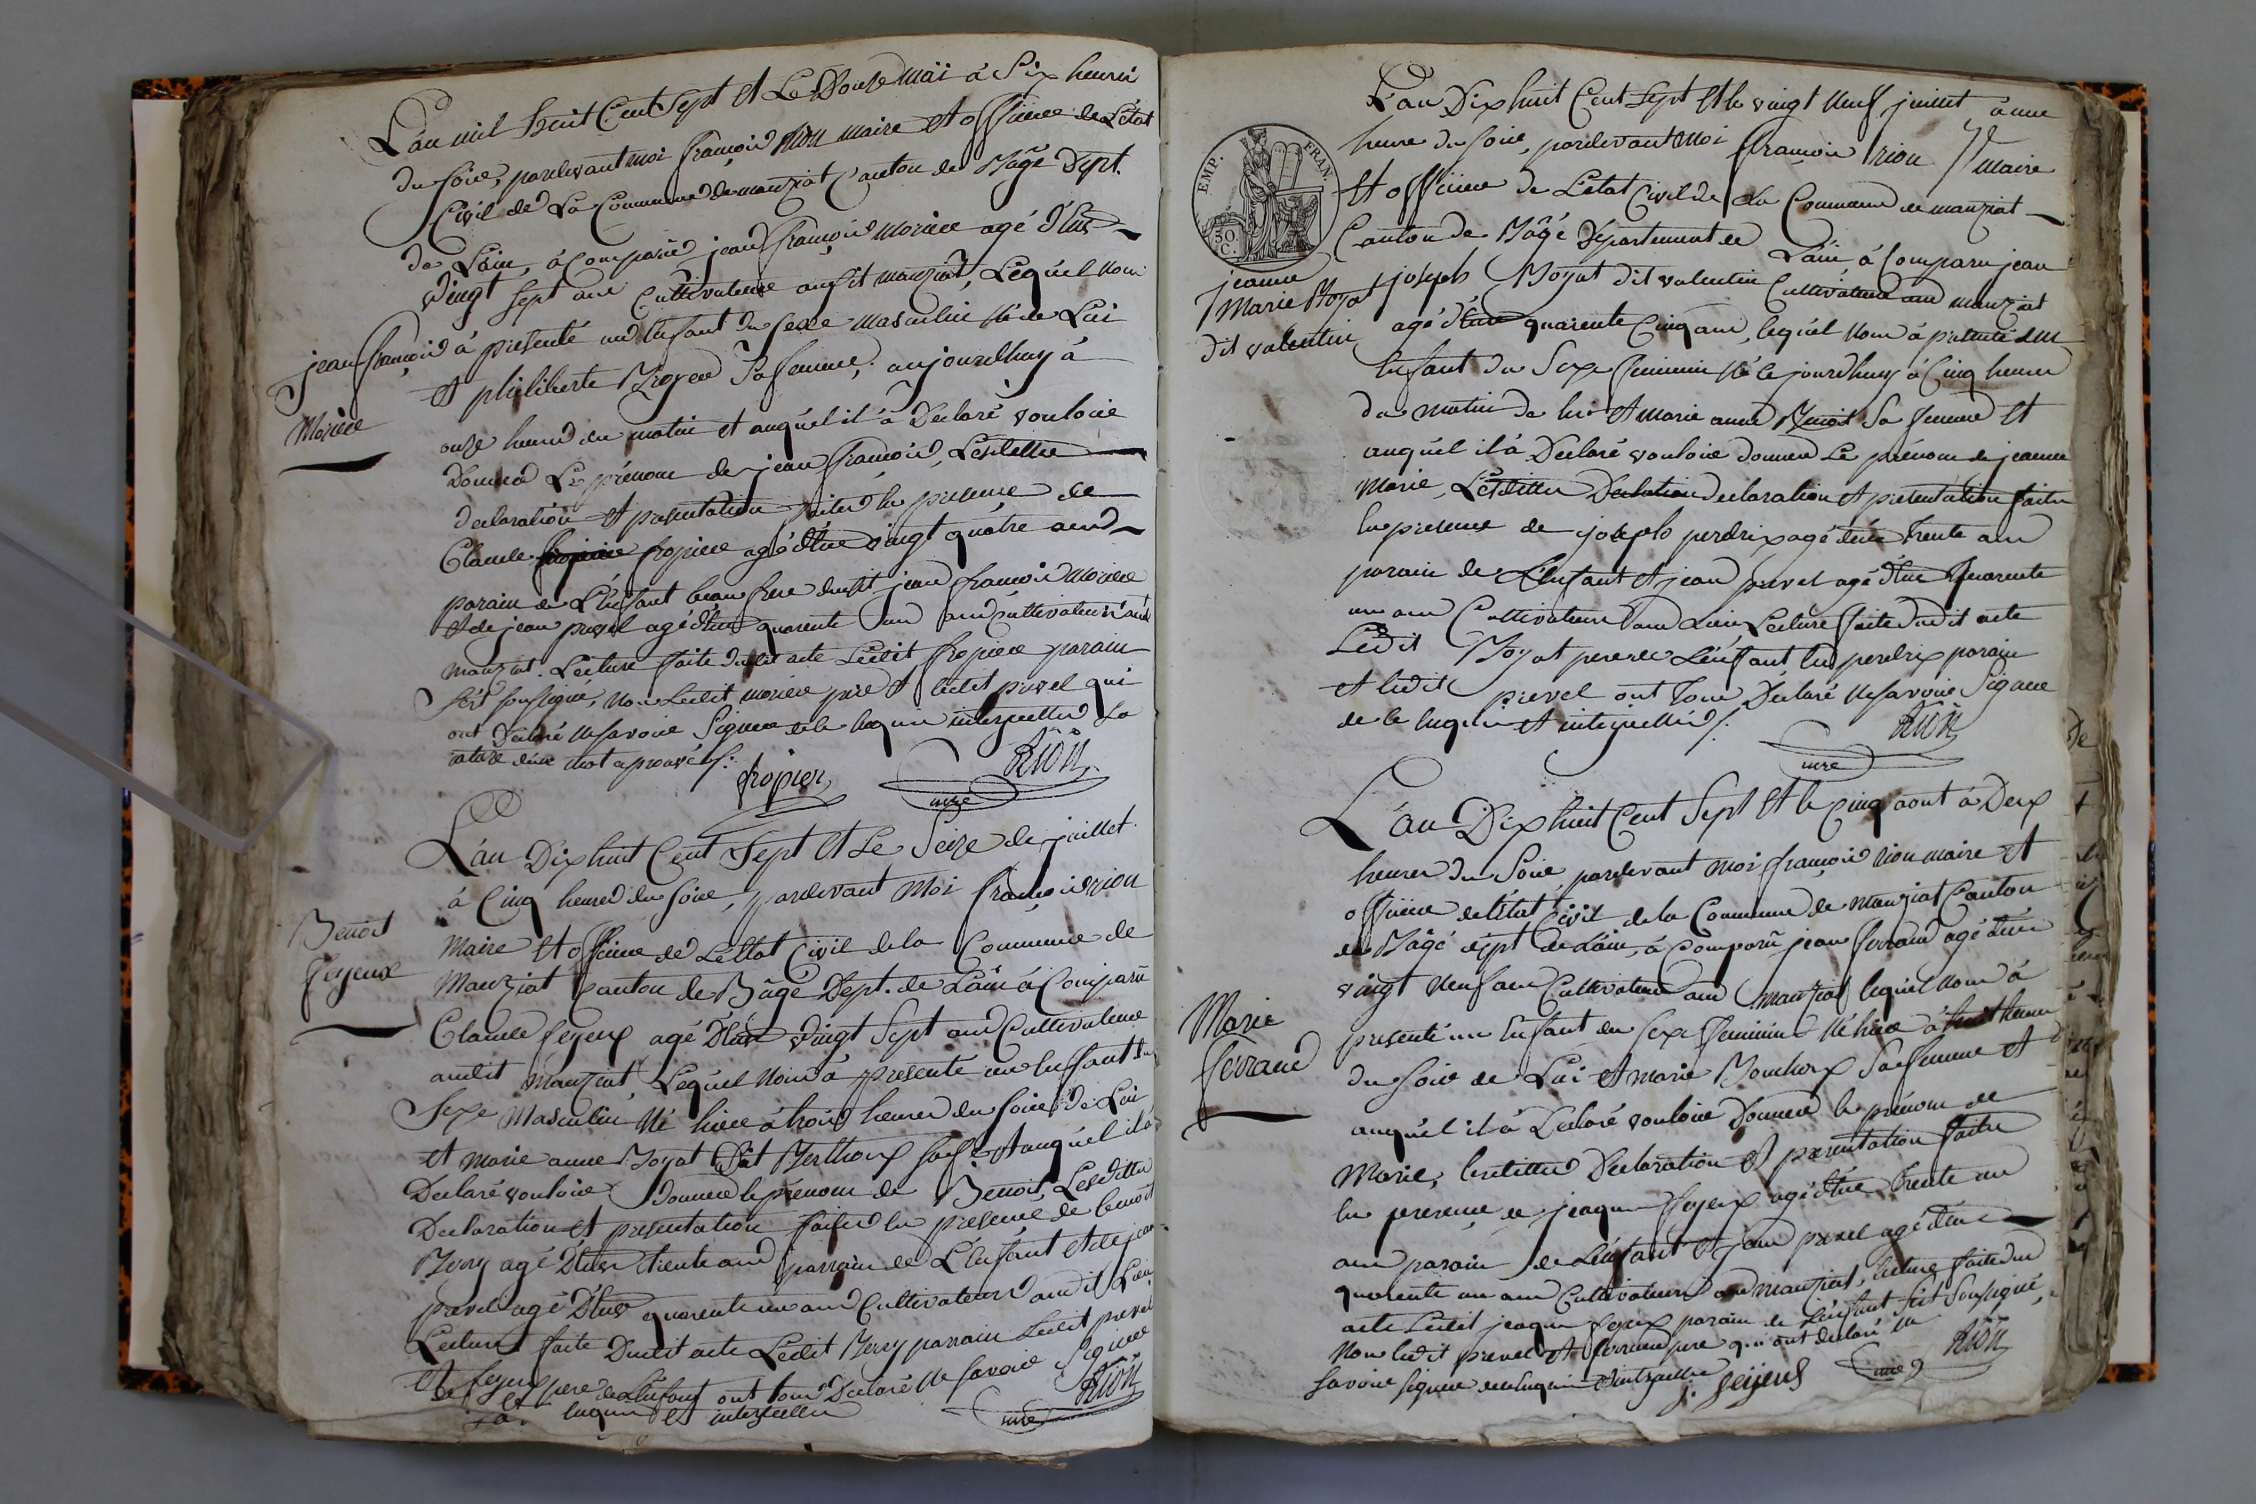 L'an mil huit Cent Sept et Le Douze mai à Six heures
du Soire, pardevant moi françois Rion maire et officiere de L'état
Civil de La Commune de manziat Canton de Bagé Dept.
de L'ain, à comparu jean françois moriere agé d'Eus
vingt sept ans Cultivateure audit manziat, Lequel nous
à présenté un Enfant du sexe masculin Né de Lui
et philiberte Broyer Sa femme, aujourdhuy à
onze heures du matin et auquel il à Declaré vouloire
Donner Le prénom de jean françois, Lesdittes
declaration et presentation faites En presence de
Claude fropiere agé d'Eus vingt quatre ans
parain de L'Enfant beau frere dudit jean francois moriere
et de jean prevel agé d'Eus quarente un ans Cultivateurs aud.
manziat. Lecture faite dudit acte Ledit fropiere parain
s'est soussigné, Non Ledit moriere pere et ledit prevel qui
ont Declaré ne savoire Signere de le enquis interpellés La
rature d'un mot aprouvée.
fropier Rion
mre
jean françois
Moriere
L'an Dix huit Cent Sept et Le Seize de juillet
à Cinq heures du soire, pardevant Moi françois rion
Maire et officiere de Lettat Civil de la Commune de
Manziat Canton de Bâgé Dept. de L'ain à Comparu
Claude feyeux agé D'Eus vingt Sept ans Cultivateure
audit manziat, Lequel Nous à presenté un Enfant du
Sexe Masculin Né hiere à trois heures du soire, de Lui
et marie anne Boyat Dit Berthoux sa fe. et auquel il à
Declaré vouloire donnere le prénom de Benoit, Lesdittes
Declaration et presentation faites En presence de benoit
Berry agé D'Eus trente ans parrain de L'Enfant et de jean
prevel agé D'Eus quarente un ans Cultivateurs audit Lieu
Lecture faite Dudit acte Ledit Berry parrain Ledit prevel
et feyeux pere de L'Enfant ont tous Declaré Ne savoire Signere
de le enquis et interpellés
Rion
mre
Benoit
feyeux
EMP. FRAN.
50.
C.
L'an Dix huit Cent Sept et le vingt neuf juillet à une
heure du soire, pardevant Moi françois rion maire
et officiere de L'etat Civil de la Commune de manziat
Canton de Bâgé Département de L'ain à Comparu jean
joseph Boyat dit valentin Cultivateure aud. manziat
agé d'Eus quarente Cinq ans, lequel Nous à présenté un
Enfant du Sexe feminin Né ce jourdhuy à Cinq heures
du matin de lui et marie anne Benoit Sa femme et
auquel il à Declaré vouloire donnere Le prénom de jeanne
Marie, Lesdittes declaration et presentation faites
En presence de joseph perdrix agé d'Eus trente ans
parain de L'Enfant et jean prevel agé d'Eus quarente
un ans Cultivateurs aud. Lieu Lecture faite dudit acte
Ledit Boyat pere de L'Enfant led. perdrix parain
et ledit prevel ont tous Declaré ne savoire Signere
de le enquis et interpellés.
Rion
mre
jeanne
Marie Boyat
dit valentin
L'an Dix huit Cent Sept et le Cinq aout à Deux
heures du Soire pardevant moi françois rion maire et
officiere de l'état Civil de la Commune de manziat Canton
de Bâgé dépt. de L'ain, à Comparu jean ferrand agé d'Eus
vingt neuf ans Cultivateure aud. manziat lequel Nous à
presenté un Enfant du Sexe feminin Né hiere à huit heures
du soire de Lui et marie Bouchoux Sa femme et
auquel il à Declaré vouloire Donnere le prénom de
Marie, lesdittes Declaration et presentation faites
En presence de jeaques feyeux agé d'Eus trente un
ans parain de L'Enfant et jean prevel agé d'Eus
quarente un ans Cultivateurs aud. manziat, lecture faite dud.
acte Ledit jeaques feyeux parain de L'Enfant s'est soussigné,
Non ledit prevel et ferrand pere qui ont declaré ne
savoire signere de le enquis et interpellés
j. feyeux Rion
mre
Marie
ferrand